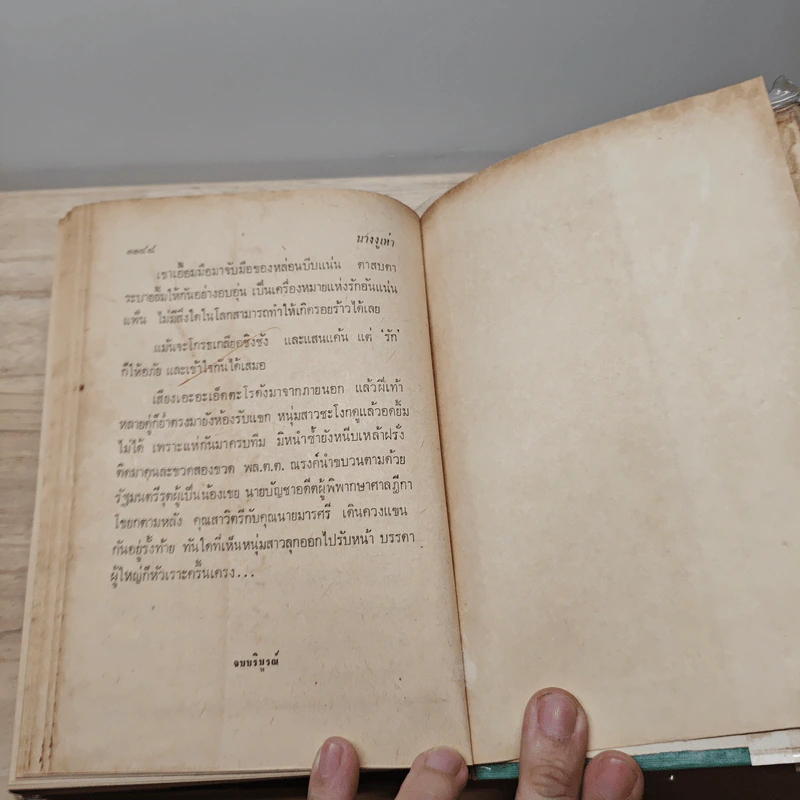 ๑๑๔๘ นางงูเห่า
เขาเอื้อมมือมาจับมือของหล่อนบีบแน่น ตาสบตา
ระบายยิ้มให้กันอย่างอบอุ่น เป็นเครื่องหมายแห่งรักอันแน่น
แฟ้น ไม่มีสิ่งใดในโลกสามารถทำให้เกิดรอยร้าวได้เลย
แม้นจะโกรธเกลียดชิงชัง และแสนแค้น แต่ ‘รัก’
ก็ให้อภัย และเข้าใจกันได้เสมอ
เสียงเอะอะเอ็ดตะโรดังมาจากภายนอก แล้วฝีเท้า
หลายคู่ก็ย่ำตรงมายังห้องรับแขก หนุ่มสาวชะโงกดูแล้วอดยิ้ม
ไม่ได้ เพราะแห่กันมาครบทีม มิหนำซ้ำยังหนีบเหล้าฝรั่ง
ติดมาคนละขวดสองขวด พล.ต.ต. ณรงค์นำขบวนตามด้วย
รัฐมนตรีรุตผู้เป็นน้องเขย นายบัญชาอดีตผู้พิพากษาศาลฎีกา
โขยกตามหลัง คุณสาวิตรีกับคุณนายมารศรี เดินควงแขน
กันอยู่รั้งท้าย ทันใดที่เห็นหนุ่มสาวลุกออกไปรับหน้า บรรดา
ผู้ใหญ่ก็หัวเราะครื้นเครง...
จบบริบูรณ์